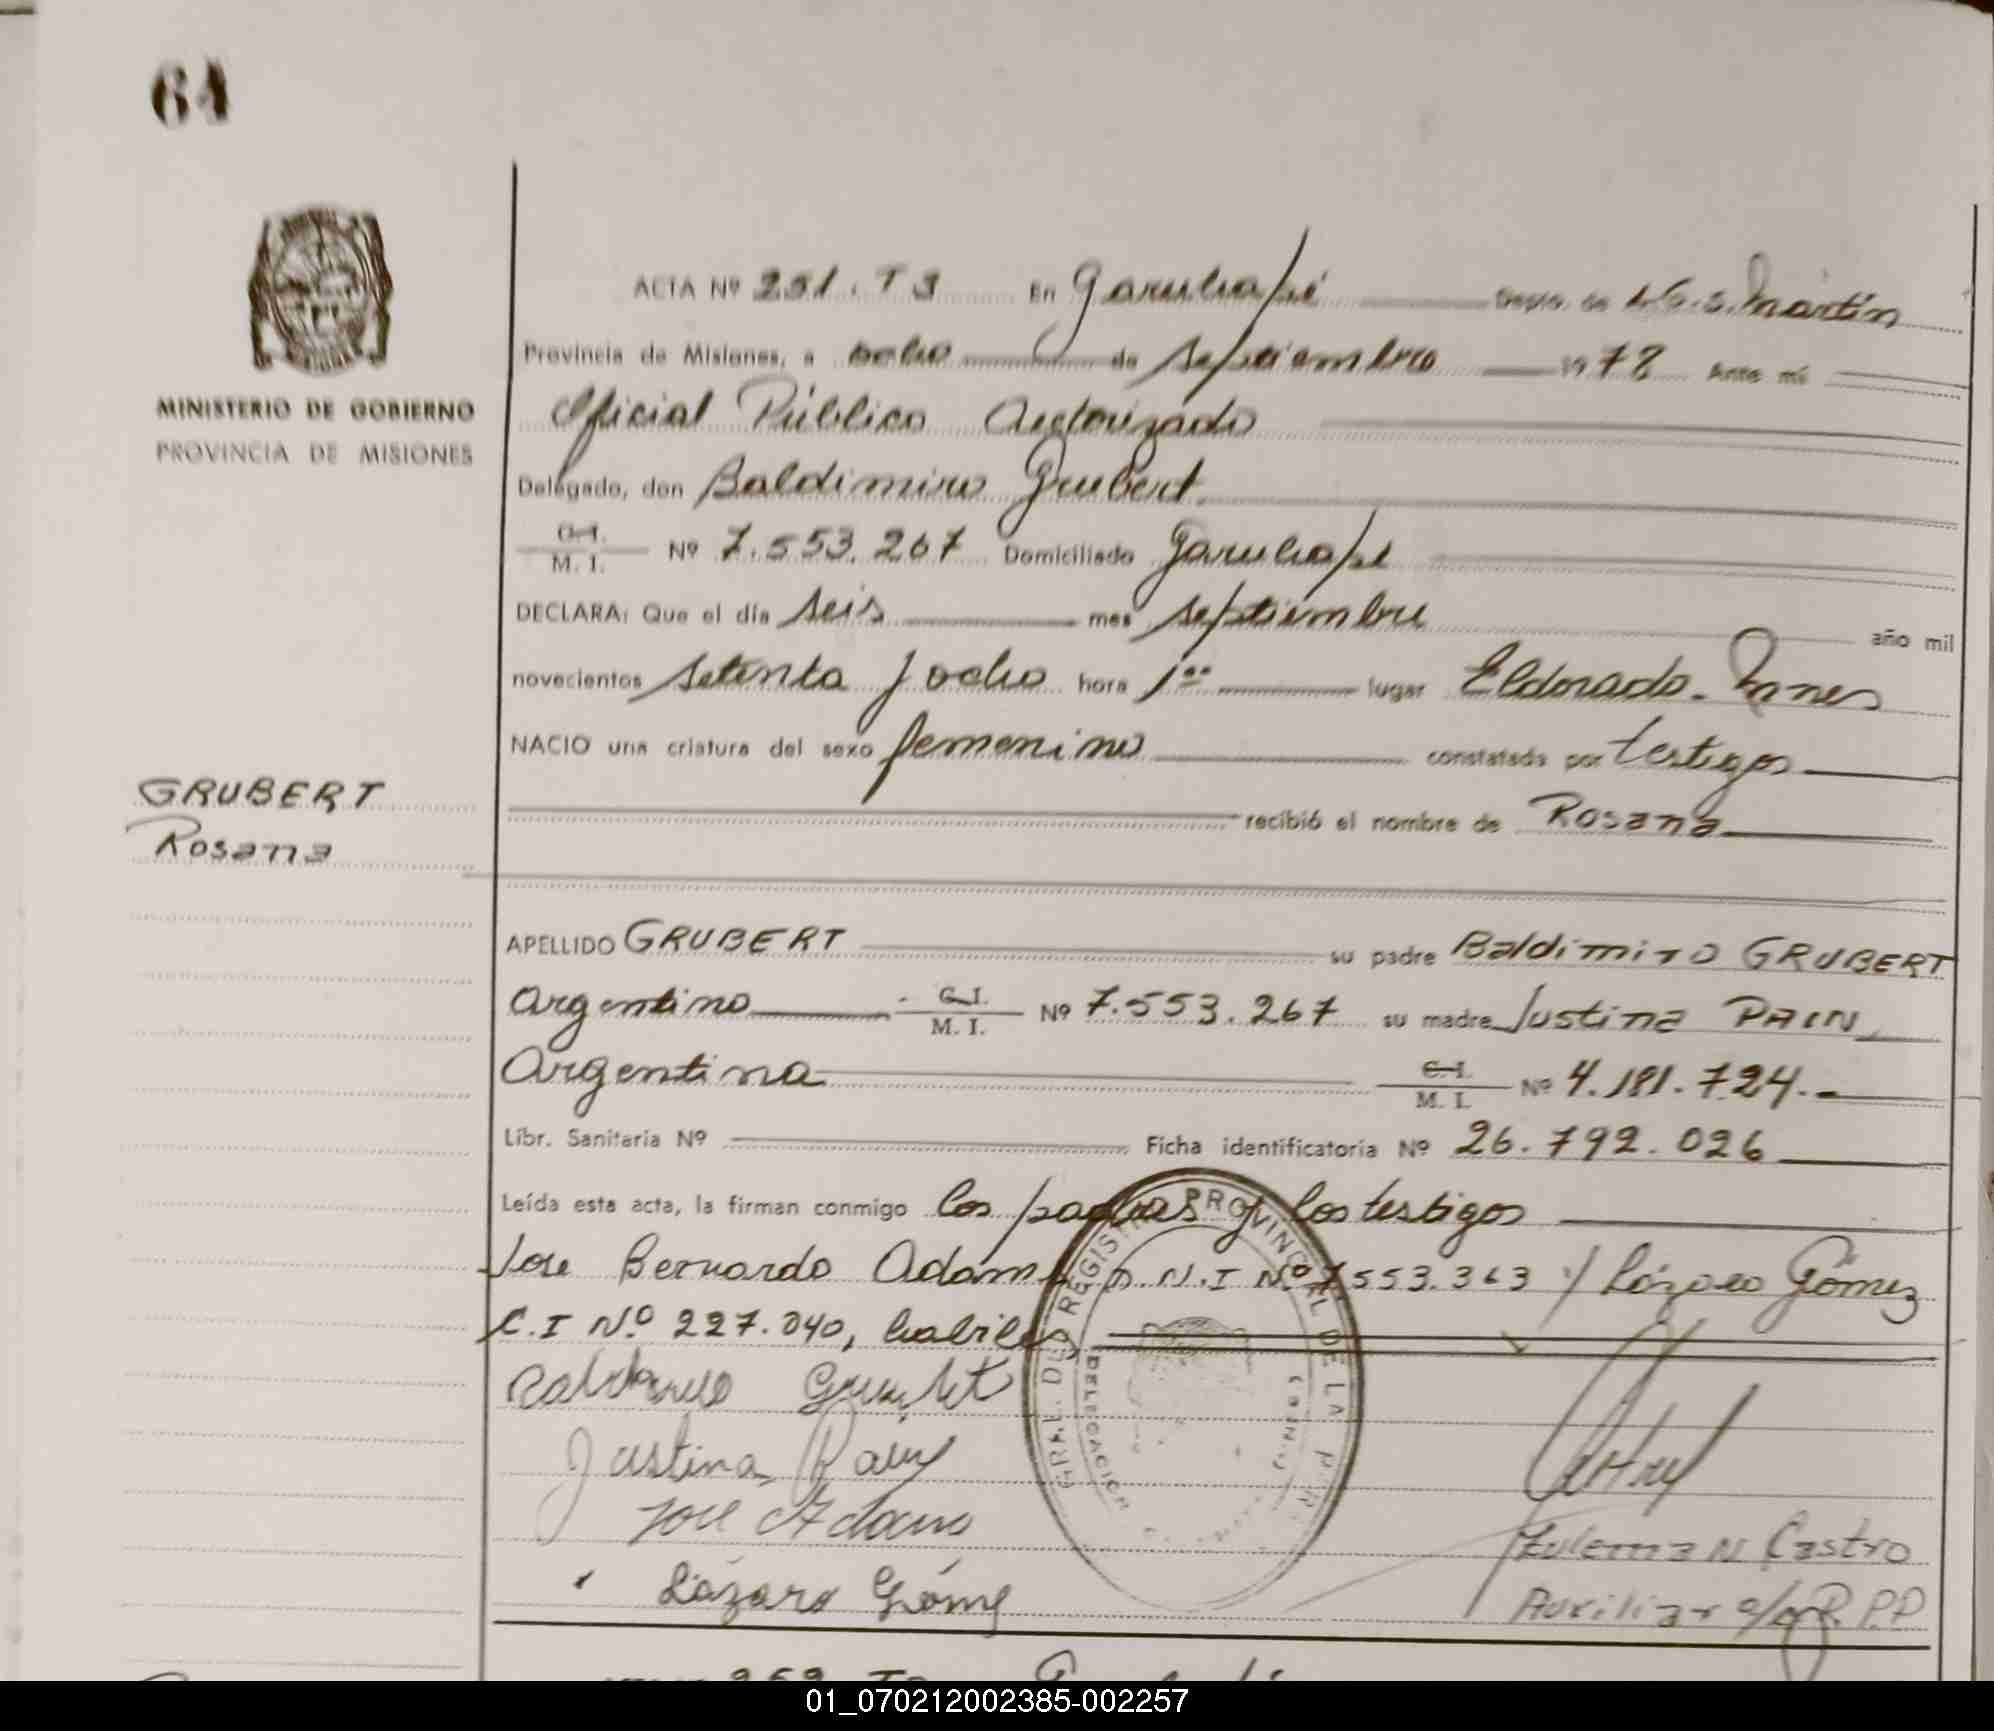 64
MINISTERIO DE GOBIERNO
PROVINCIA DE MISIONES
ACTA Nº 251. T 3 En Garuhapé Depto. de L. G. S. Martín
Provincia de Misiones, a ocho de septiembre 1978 Ante mi
Oficial Público Autorizado
Delegado, don Baldimiro Grubert
C.I. M. I. Nº 7.553.267 Domiciliado Garuhapé
DECLARA: Que el día seis mes septiembre año mil
novecientos setenta y ocho hora 1⁰⁰ lugar Eldorado - Mnes
NACIO una criatura del sexo femenino constatada por testigos
GRUBERT
Rosana
recibió el nombre de Rosana
APELLIDO GRUBERT su padre Baldimiro GRUBERT
argentino C.I. M. I. Nº 7.553.267 su madre Justina PAIN
Argentina C.I. M. I. Nº 4.181.724.-
Libr. Sanitaria Nº Ficha identificatoria Nº 26.792.026
Leída esta acta, la firman conmigo los padres y los testigos
Jose Bernardo Adams D.N.I Nº 7553.363 y Lázaro Gómez
C.I Nº 227.040, habiles
Justina Pain
Jose Adams
Lázaro Góme
GRAL. DEL REGISTRO PROVINCIAL DE LA
DELEGACION
Zulema N Castro
Auxiliar a/c R.P.P
01_070212002385-002257